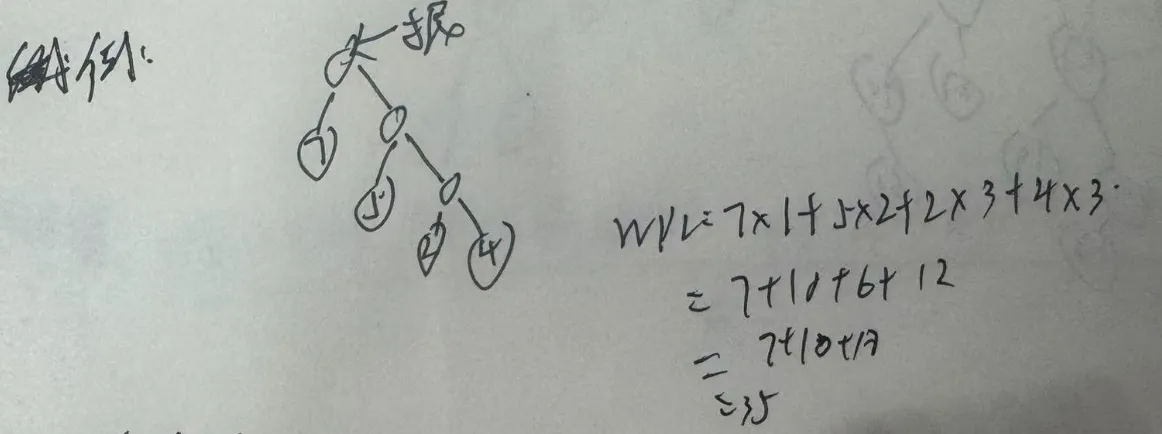 例:
根
7
5
2
4
WPL=7×1+5×2+2×3+4×3
=7+10+6+12
=7+10+18
=35